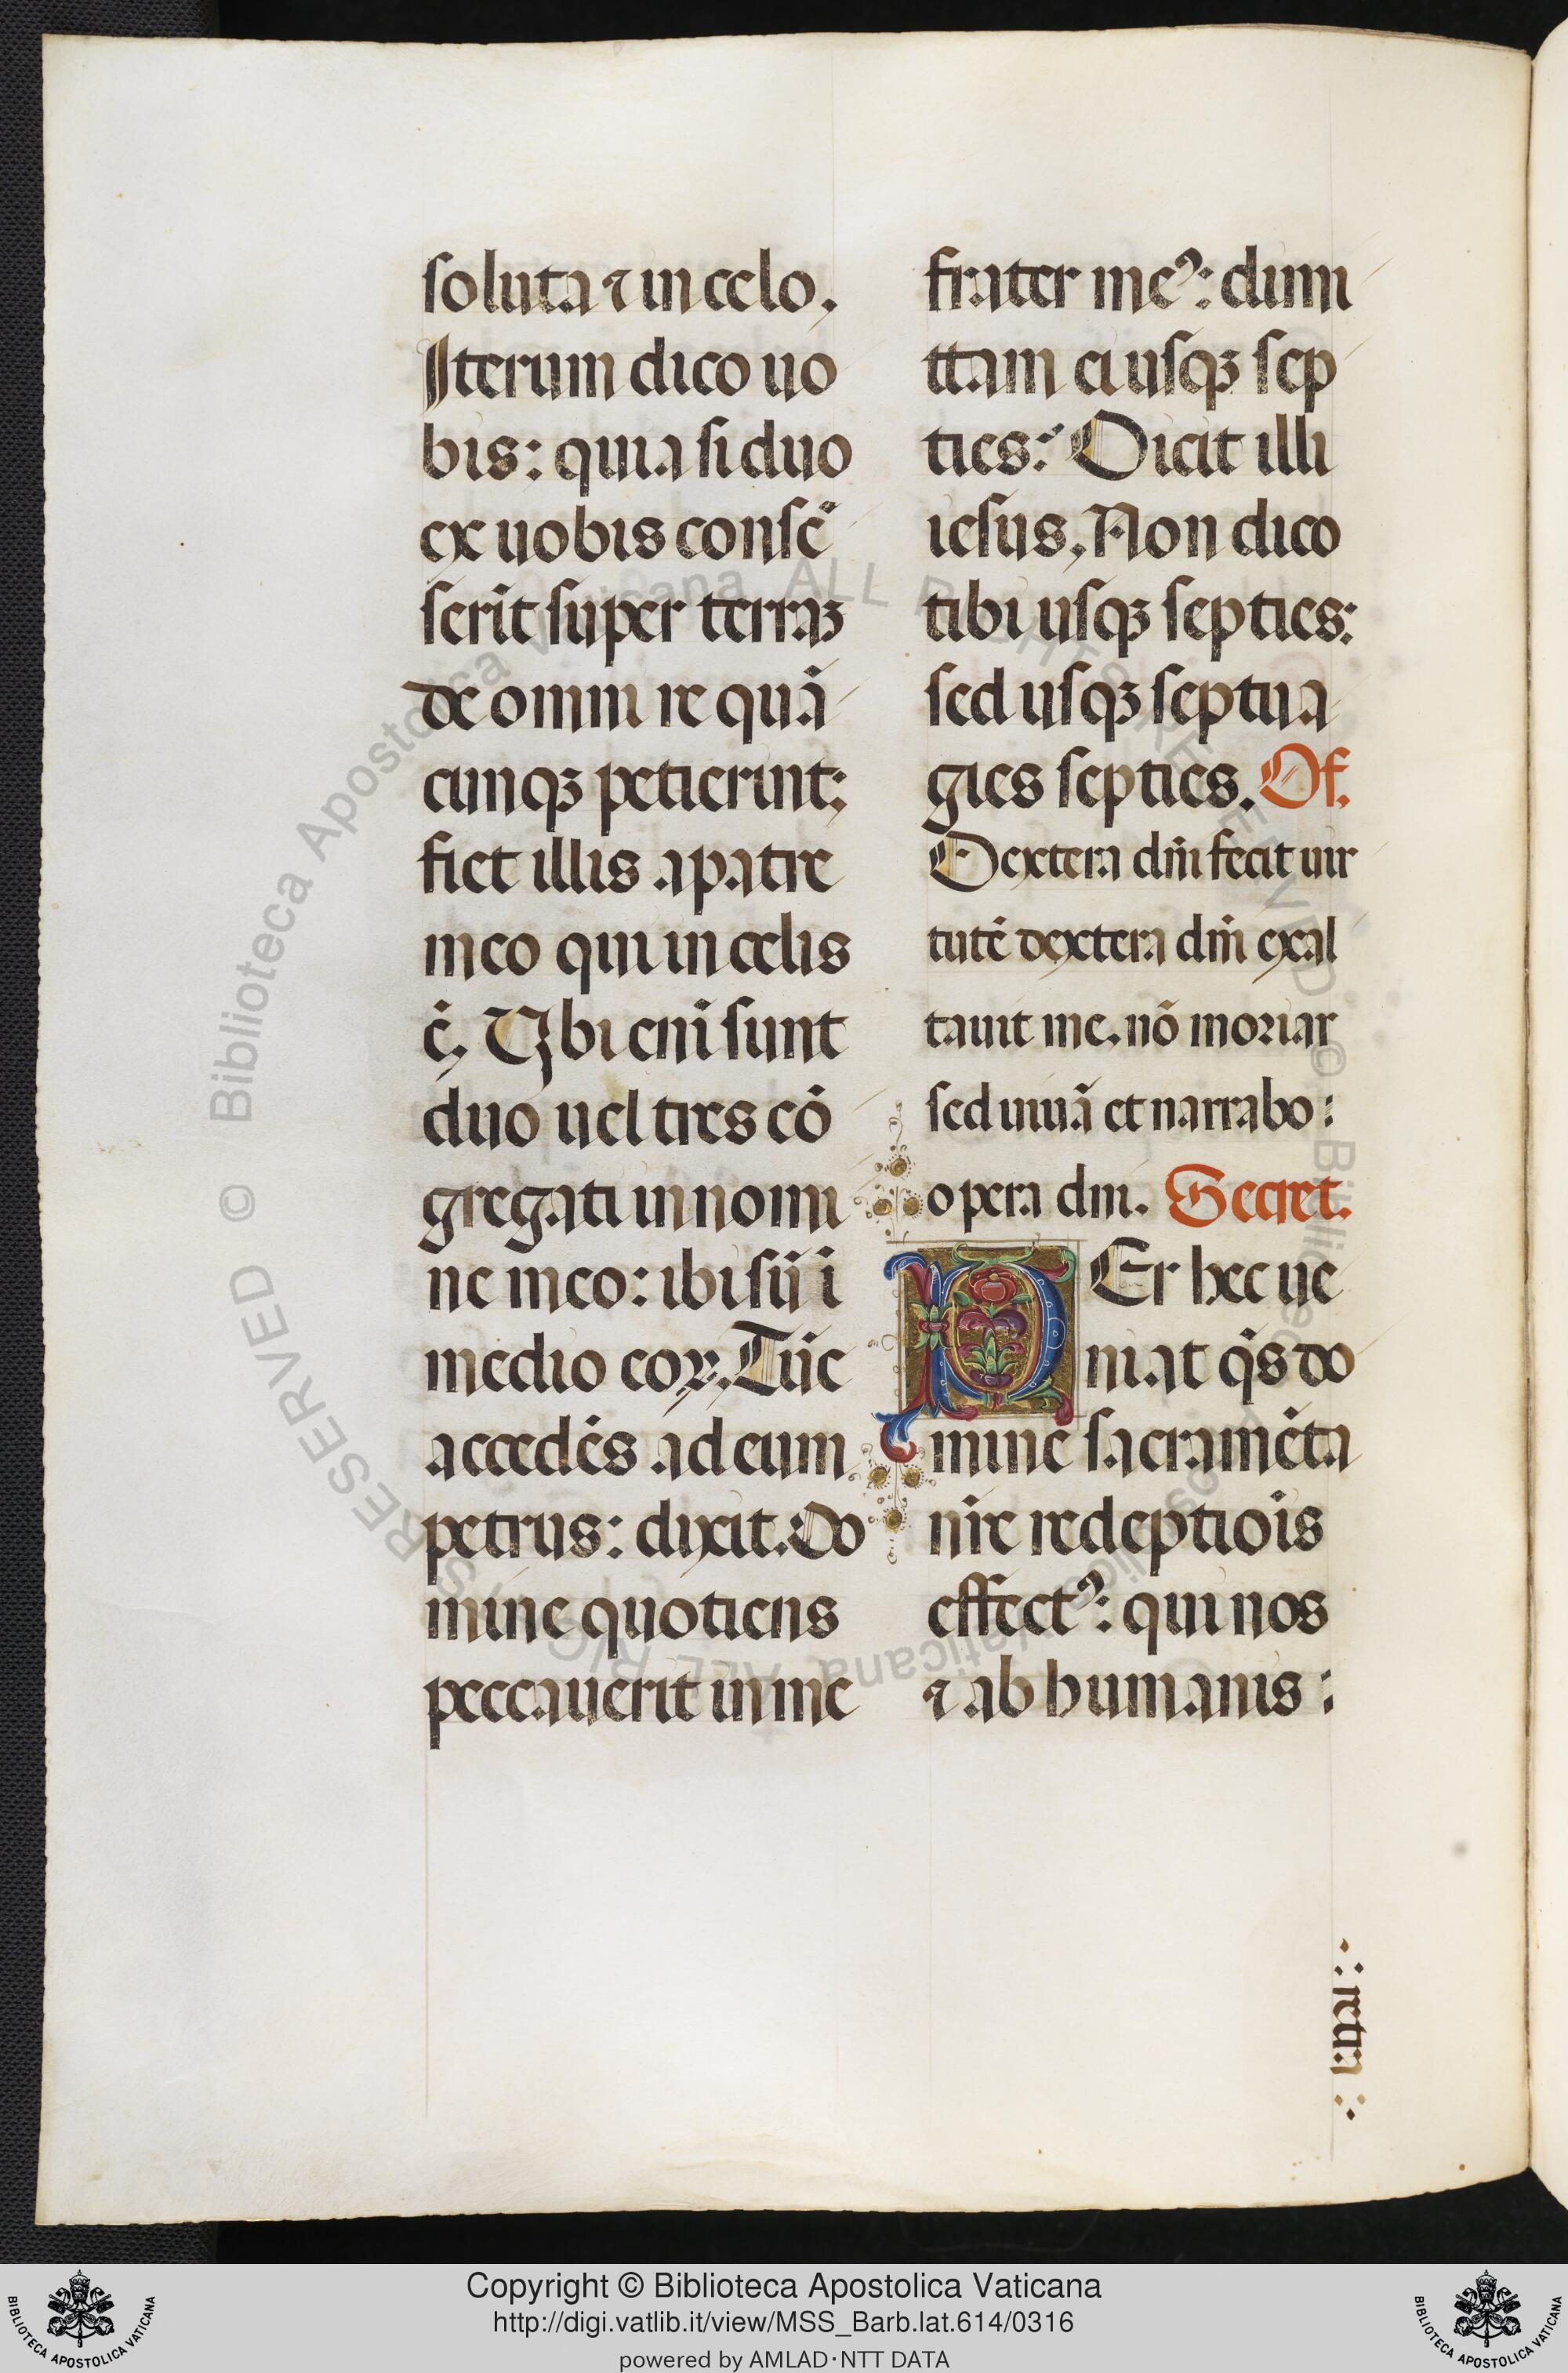 soluta ⁊ in celo.
Iterum dico uo
bis: quia si duo
ex uobis consē
serit super terraꝫ
de omni re quā
cunqꝫ petierint:
fiet illis a patre
meo qui in celis
ē. Ubi eni̅ sunt
duo uel tres cō
gregati in nomi
ne meo: ibi sū i̅
medio coꝝ. Tūc
accedēs ad eum
petrus: dixit. Do
mine quotiens
peccauerit in me
frater meꝰ: dimi
ttam ei usqꝫ sep
ties? Dicit illi
iesus. Non dico
tibi usqꝫ septies:
sed usqꝫ septua
gies septies. Of.
Dextera dn̄i fecit uir
tutē dextera dn̄i exal
tauit me. nō moriar
sed uiuā et narrabo:
opera dni. Secret.
PEr hec ue
niat q̄s do
mine sacramēta
nr̄e redēptiois
effectꝰ: qui nos
⁊ ab humanis:
·:· retra ·:·
Copyright © Biblioteca Apostolica Vaticana
http://digi.vatlib.it/view/MSS_Barb.lat.614/0316
powered by AMLAD·NTT DATA
BIBLIOTECA APOSTOLICA VATICANA
BIBLIOTECA APOSTOLICA VATICANA
© Biblioteca Apostolica Vaticana ALL RIGHTS RESERVED